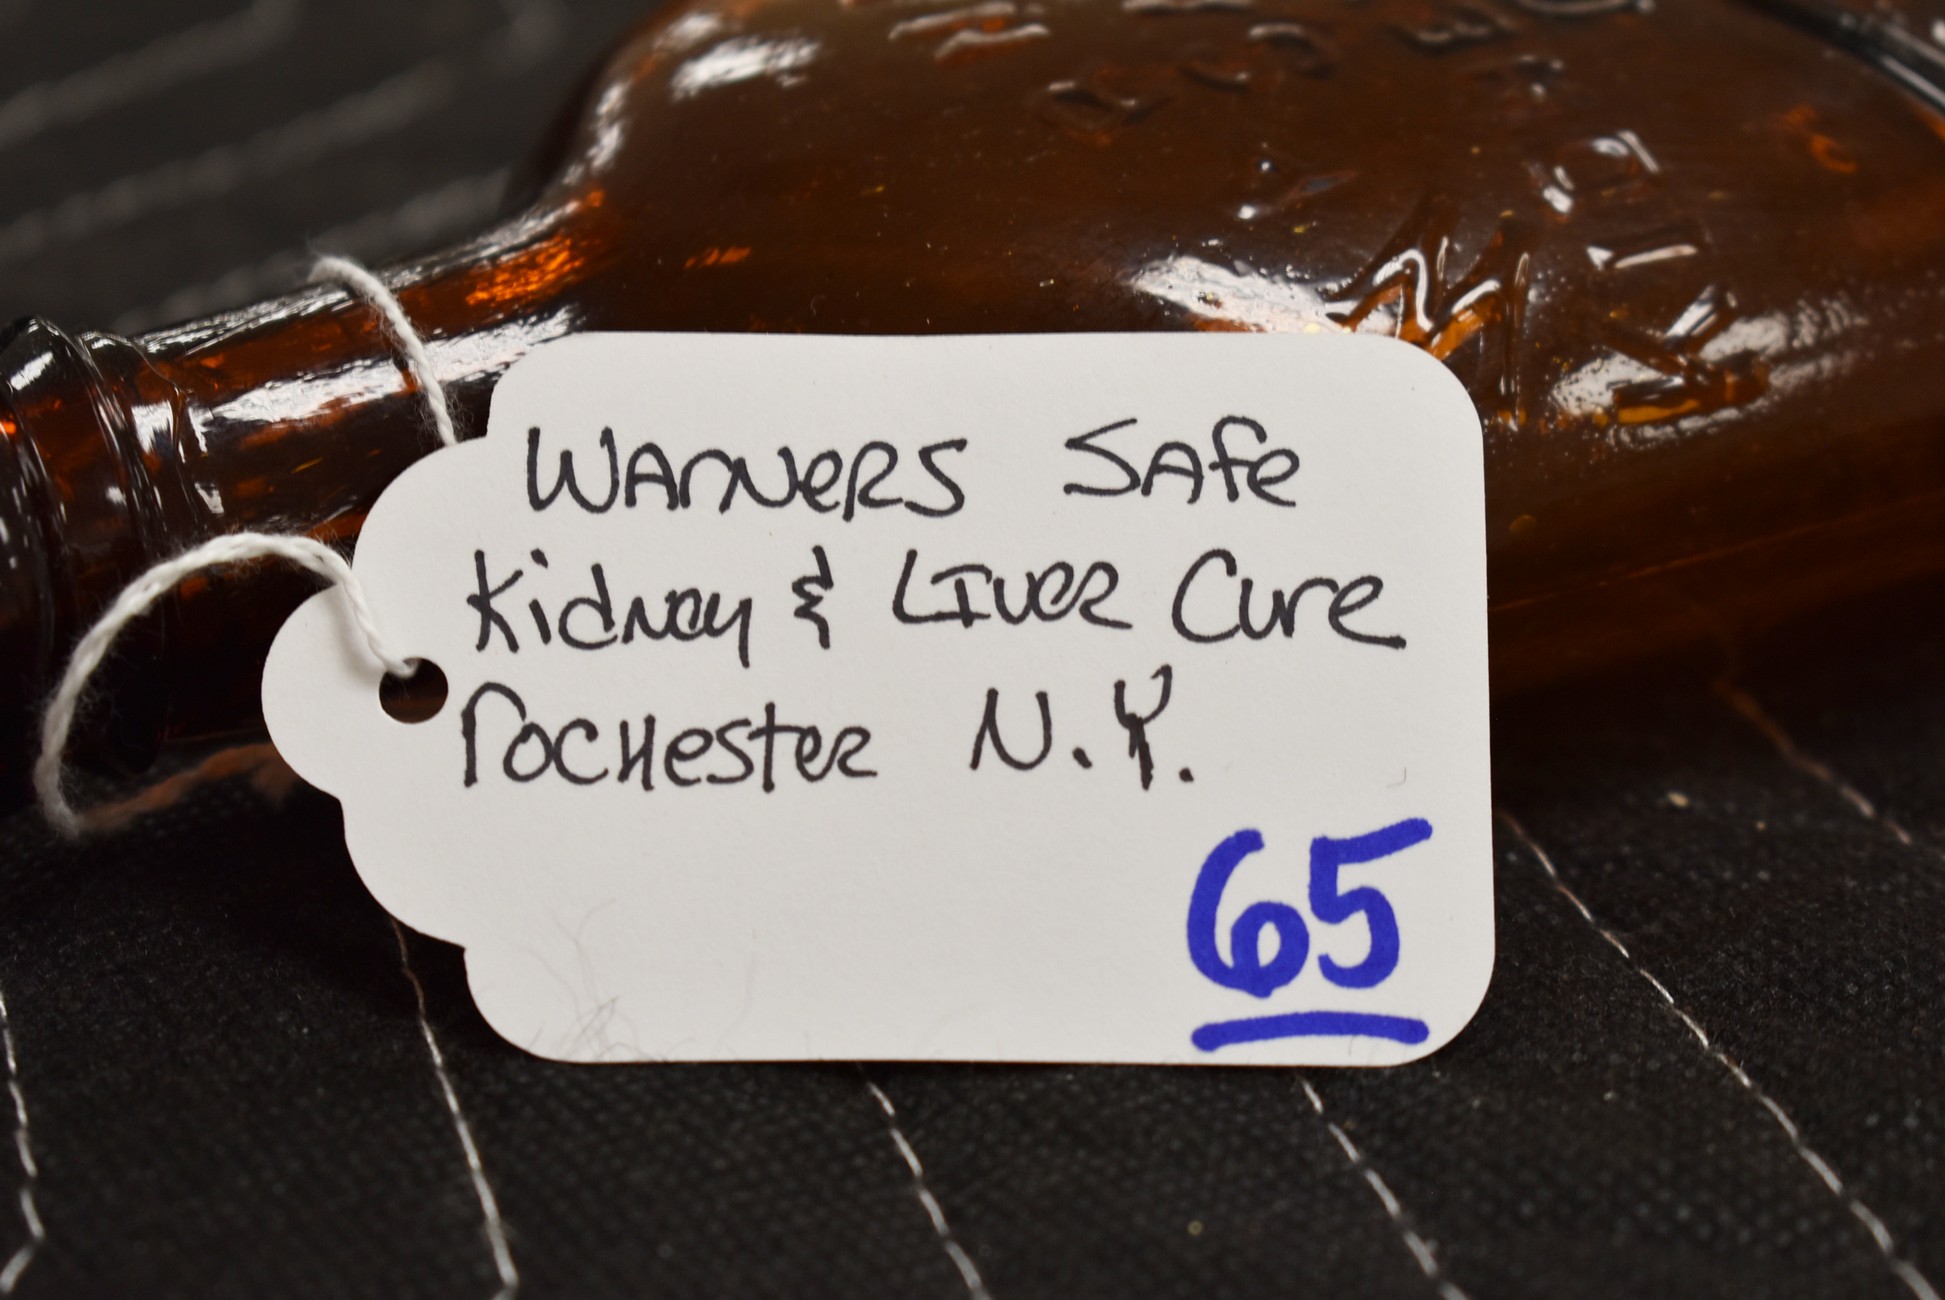 Warners Safe
Kidney & Liver Cure
Rochester N.Y.
65